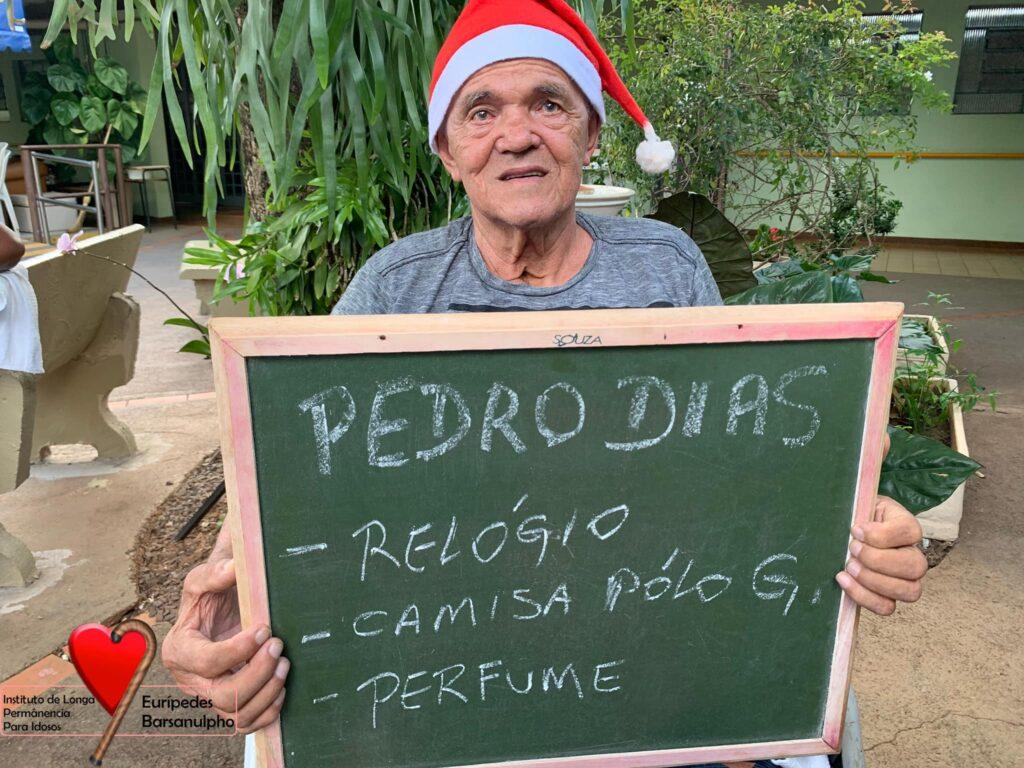 SOUZA
PEDRO DIAS
- RELÓGIO
- CAMISA PÓLO G.
- PERFUME
Instituto de Longa
Permânencia
Para Idosos
Eurípedes
Barsanulpho